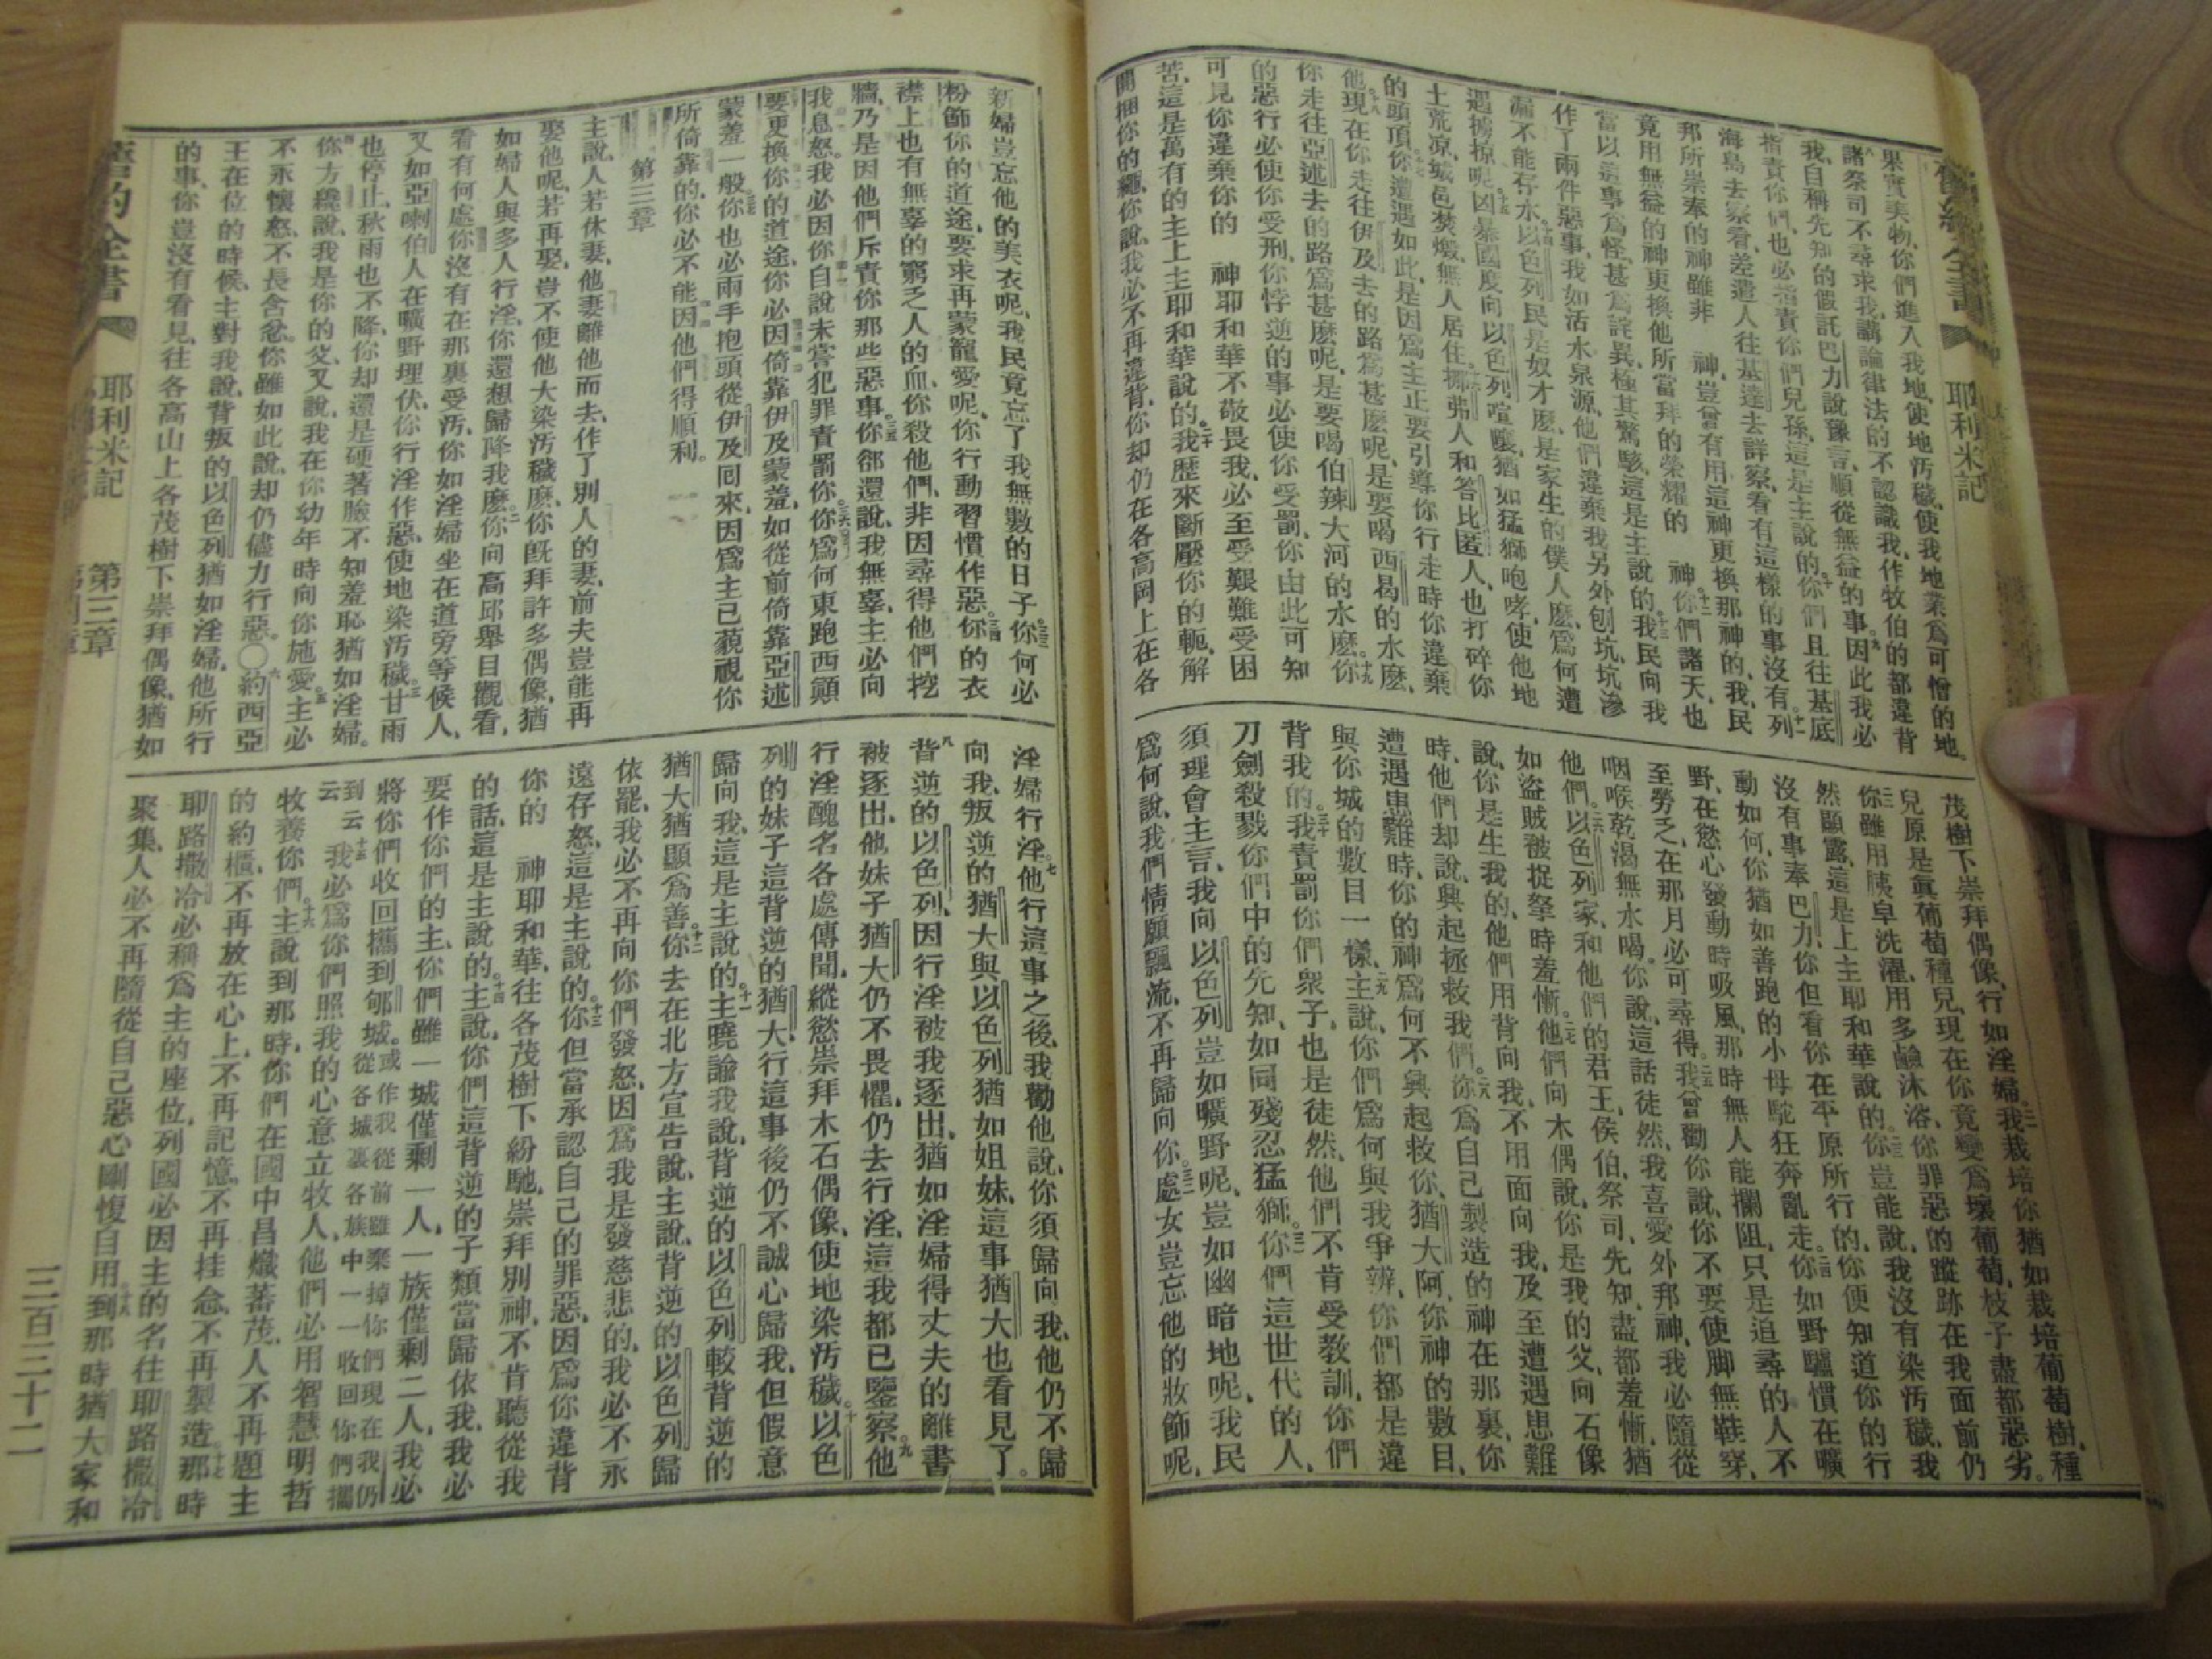 耶利米記
果實美物、你們進入我地、使地汚穢、使我地業爲可憎的地、
諸祭司不尋求我、講論律法的不認識我、作牧伯的都違背
我、自稱先知的假託巴力說豫言、順從無益的事。九因此我必
指責你們、也必指責你們兒孫、這是主說的。十你們且往基底
海島去察看、差遣人往基達去詳察、看有這樣的事沒有。十一列
邦所崇奉的神雖非 神、豈曾有用這神更換那神的、我民
竟用無益的神更換他所當拜的榮耀的 神。十二你們諸天、也
當以這事爲怪、甚爲詫異、極其驚駭、這是主說的。十三我民向我
作了兩件惡事、我如活水泉源、他們違棄我、另外刨坑、坑滲
漏不能存水。十四以色列民是奴才麽、是家生的僕人麽、爲何遭
遇擄掠呢。十五凶暴國度向以色列喧嚷、猶如猛獅咆哮、使他地
土荒凉、城邑焚燬、無人居住。十六挪弗人和答比匿人、也打碎你
的頭頂。十七你遭遇如此、是因爲主正要引導你行走時、你違棄
他。十八現在你走往伊及去的路爲甚麽呢、是要喝西曷的水麽、
你走往亞述去的路爲甚麽呢、是要喝伯辣大河的水麽。十九你
的惡行必使你受刑、你悖逆的事必使你受罰、你由此可知
可見你違棄你的 神耶和華、不敬畏我、必至受艱難受困
苦、這是萬有的主上主耶和華說的。二十我歷來斷壓你的軛、解
開捆你的繩、你說、我必不再違背、你却仍在各高岡上、在各
茂樹下崇拜偶像、行如淫婦。二一我栽培你猶如栽培葡萄樹、種
兒原是眞葡萄種兒、現在你竟變爲壞葡萄、枝子盡都惡劣。
二二你雖用胰皁洗濯、用多鹼沐浴、你罪惡的蹤跡在我面前仍
然顯露、這是上主耶和華說的。二三你豈能說我沒有染汚穢、我
沒有事奉巴力、你但看你在平原所行的、你便知道你的行
動如何、你猶如善跑的小母駝、狂奔亂走。二四你如野驢慣在曠
野、在慾心發動時吸風、那時無人能攔阻、只是追尋的人不
至勞乏、在那月必可尋得。二五我曾勸你說、你不要使脚無鞋穿、
咽喉乾渴無水喝、你說、這話徒然、我喜愛外邦神、我必隨從
他們。二六以色列家、和他們的君王、侯伯、祭司、先知、盡都羞慚、猶
如盜賊被捉拏時羞慚。二七他們向木偶說、你是我的父、向石像
說、你是生我的、他們用背向我、不用面向我、及至遭遇患難
時、他們却說、興起拯救我們。二八你爲自己製造的神在那裏、你
遭遇患難時、你的神爲何不興起救你、猶大阿、你神的數目、
與你城的數目一樣。二九主說、你們爲何與我爭辨、你們都是違
背我的。三十我責罰你們衆子、也是徒然、他們不肯受教訓、你們
刀劍殺戮你們中的先知、如同殘忍猛獅。三一你們這世代的人、
須理會主言、我向以色列豈如曠野呢、豈如幽暗地呢、我民
爲何說、我們情願飄流、不再歸向你。三二處女豈忘他的妝飾呢、
新婦豈忘他的美衣呢、我民竟忘了我無數的日子。三三你何必
粉飾你的道途、要求再蒙寵愛呢、你行動習慣作惡。三四你的衣
襟上也有無辜的窮乏人的血、你殺他們、非因尋得他們挖
牆、乃是因他們斥責你那些惡事。三五你卻還說、我無辜、主必向
我息怒、我必因你自說未嘗犯罪責罰你。三六你爲何東跑西顚
要更換你的道途、你必因倚靠伊及蒙羞、如從前倚靠亞述
蒙羞一般。三七你也必兩手抱頭從伊及回來、因爲主已藐視你
所倚靠的、你必不能因他們得順利。
第三章
主說、人若休妻、他妻離他而去、作了別人的妻、前夫豈能再
娶他呢、若再娶、豈不使他大染汚穢麽、你旣拜許多偶像、猶
如婦人與多人行淫、你還想歸降我麽。二你向高邱舉目觀看、
看有何處你沒有在那裏受汚、你如淫婦坐在道旁等候人、
又如亞喇伯人在曠野埋伏、你行淫作惡、使地染汚穢。三甘雨
也停止、秋雨也不降、你却還是硬著臉、不知羞恥、猶如淫婦。
四你方纔說、我是你的父、又說、我在你幼年時向你施愛。五主必
不永懷怒、不長含忿、你雖如此說、却仍儘力行惡。○六約西亞
王在位的時候、主對我說、背叛的以色列猶如淫婦、他所行
的事、你豈沒有看見、往各高山上各茂樹下崇拜偶像、猶如
淫婦行淫。七他行這事之後、我勸他說、你須歸向我、他仍不歸
向我、叛逆的猶大與以色列猶如姐妹、這事猶大也看見了。
八背逆的以色列、因行淫被我逐出、猶如淫婦得丈夫的離書
被逐出、他妹子猶大仍不畏懼、仍去行淫、這我都已鑒察。九他
行淫醜名各處傳聞、縱慾崇拜木石偶像、使地染汚穢。十以色
列的妹子這背逆的猶大、行這事後、仍不誠心歸我、但假意
歸向我、這是主說的。十一主曉諭我說、背逆的以色列較背逆的
猶大猶顯爲善。十二你去在北方宣告說、主說、背逆的以色列歸
依罷、我必不再向你們發怒、因爲我是發慈悲的、我必不永
遠存怒、這是主說的。十三你但當承認自己的罪惡、因爲你違背
你的 神耶和華、往各茂樹下紛馳、崇拜別神、不肯聽從我
的話、這是主說的。十四主說、你們這背逆的子類當歸依我、我必
要作你們的主、你們雖一城僅剩一人、一族僅剩二人、我必
將你們收回攜到郇城。或作我從前雖棄掉你們現在我仍
從各城裏各族中一一收回你們攜
到云云十五我必爲你們照我的心意立牧人、他們必用智慧明哲
牧養你們。十六主說、到那時、你們在國中昌熾蕃茂、人不再題主
的約櫃、不再放在心上、不再記憶、不再挂念、不再製造。十七那時
耶路撒冷必稱爲主的座位、列國必因主的名往耶路撒冷
聚集、人必不再隨從自己惡心剛愎自用。十八到那時猶大家和
耶利米記
第三章
三百三十二